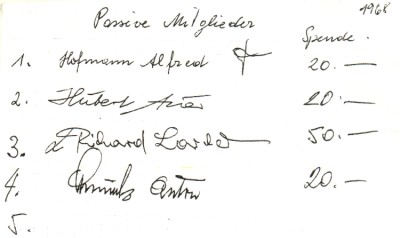 1968
Passive Mitglieder
Spende.
1. Hofmann Alfred 20.—
2. Hubert 20.—
3. Richard 50.—
4. Anton 20.—
5.